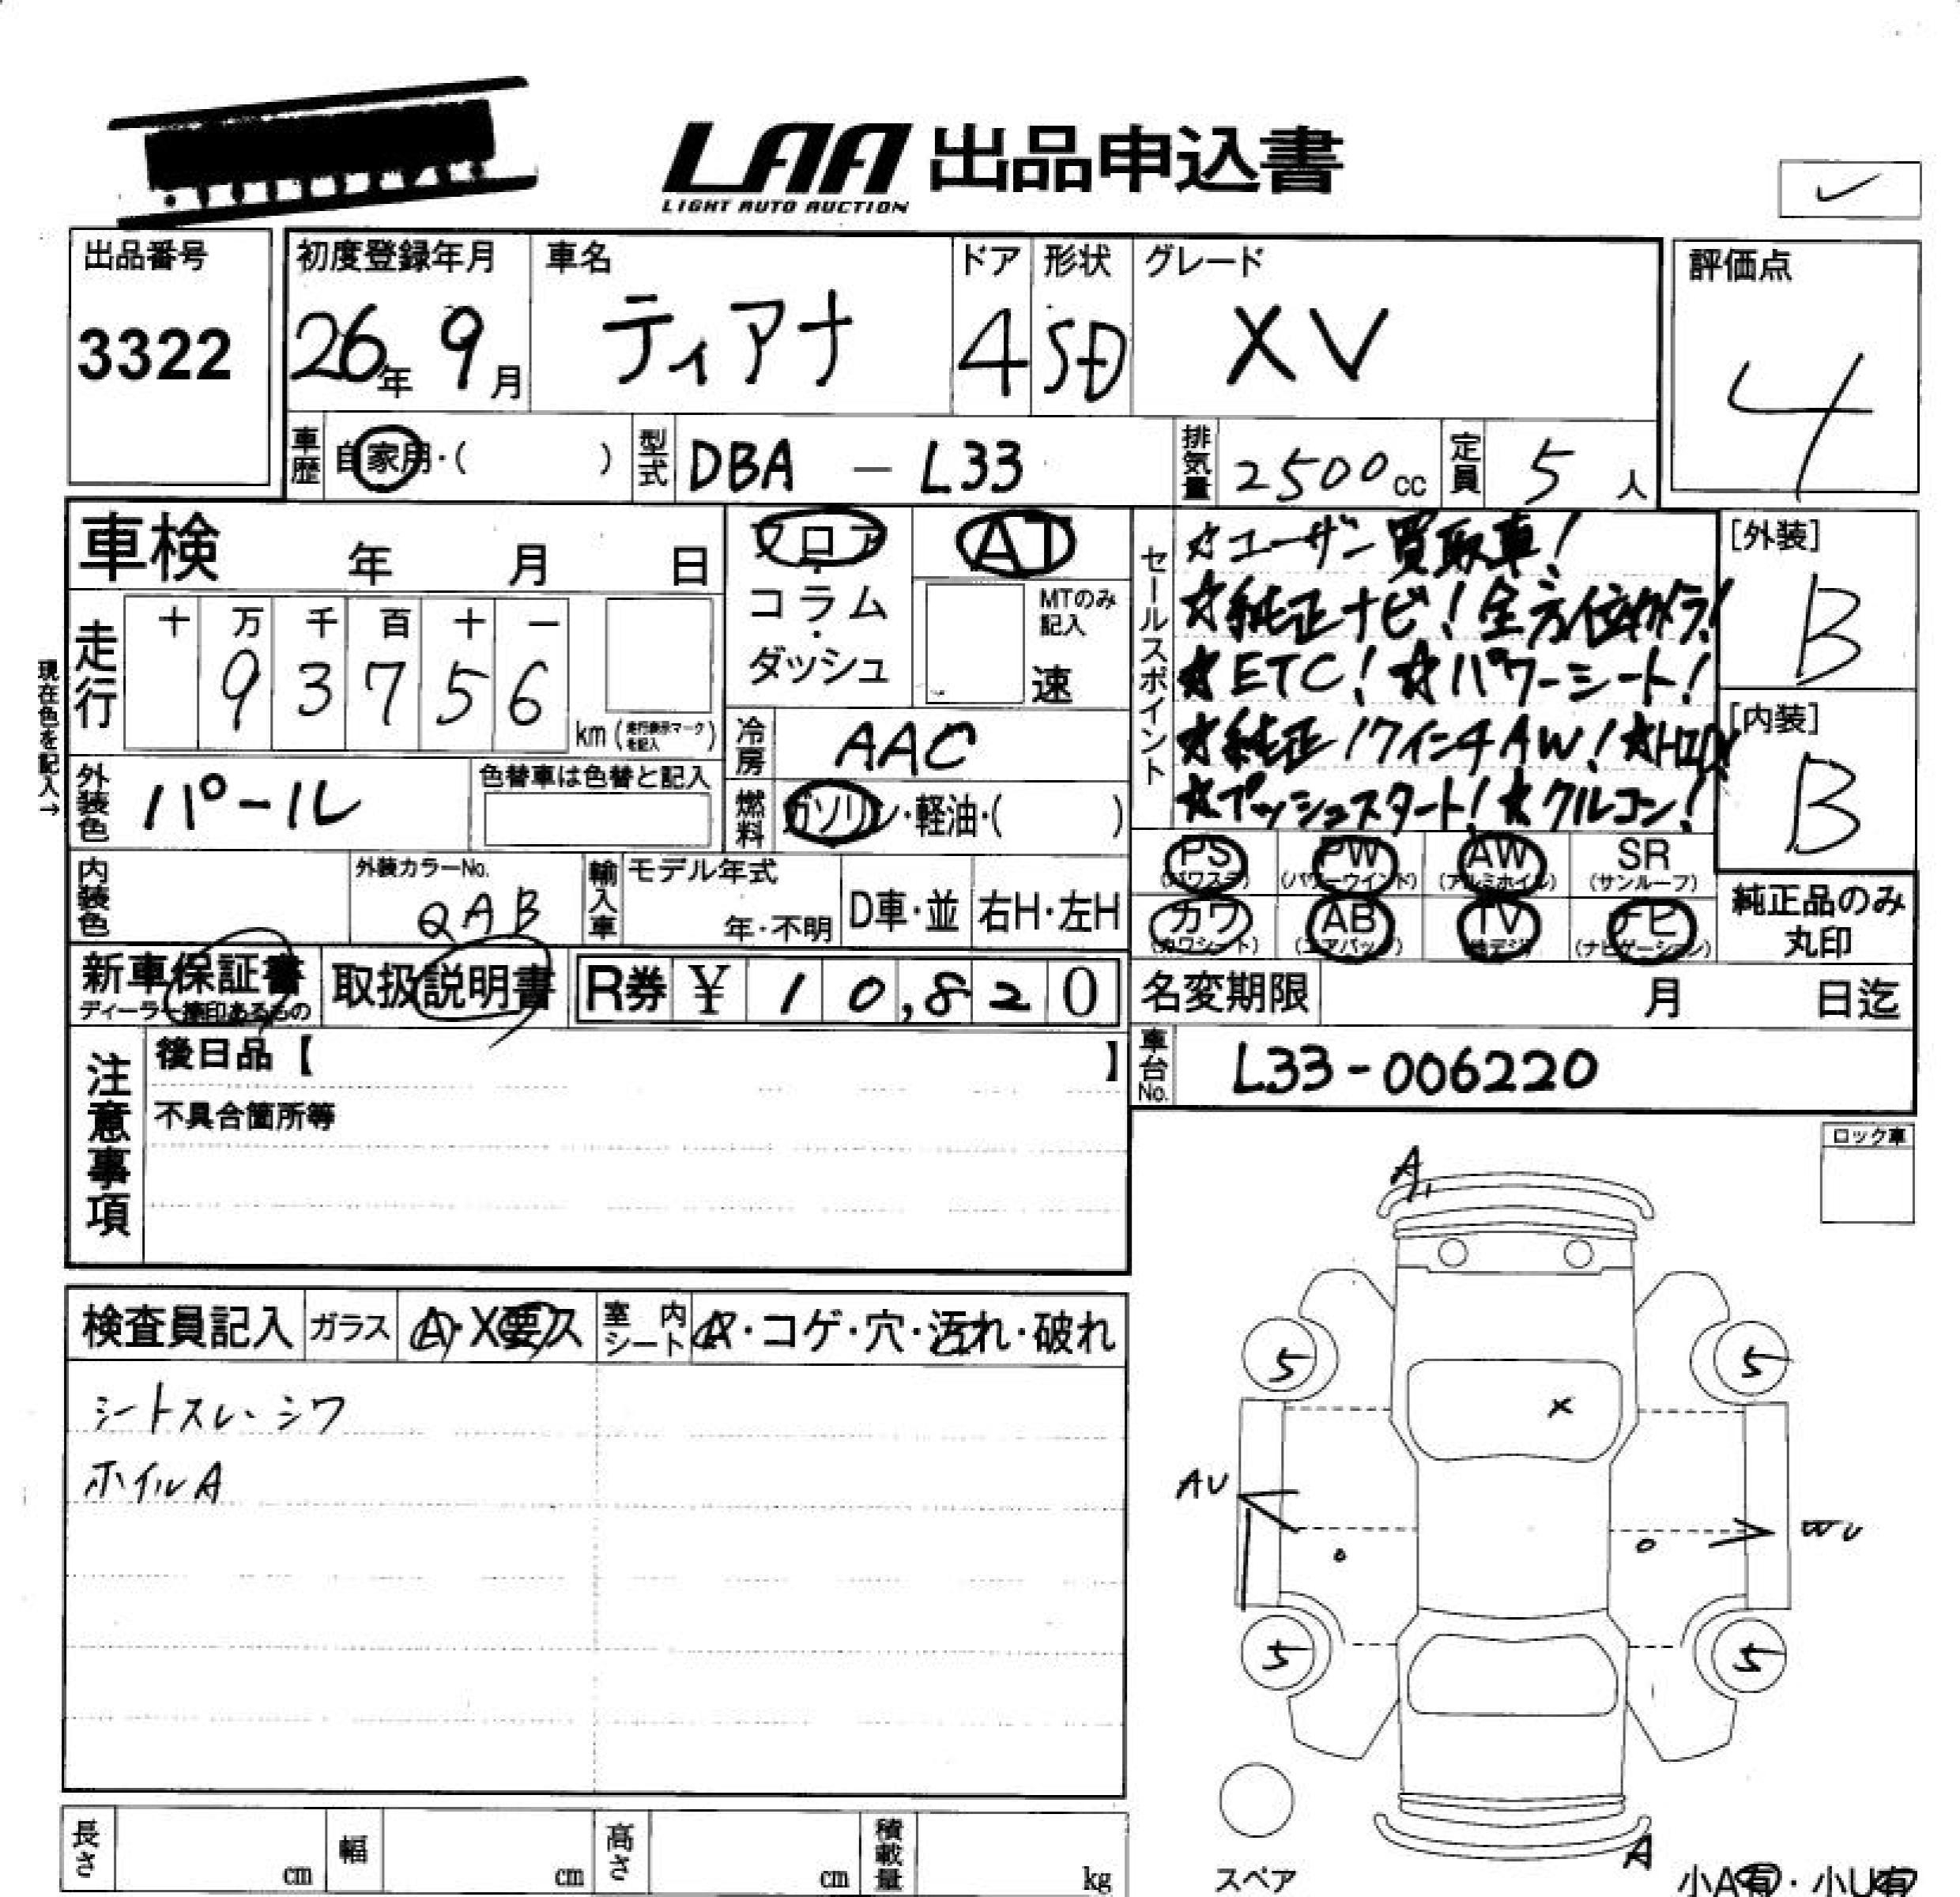 LAA 出品申込書
LIGHT AUTO AUCTION
出品番号
3322
初度登録年月
26年 9月
車名
ティアナ
ドア
4
形状
SD
グレード
XV
評価点
4
車歴 自家用・( )
型式 DBA - L33
排気量 2500cc
定員 5人
車検 年 月 日
フロア・コラム・ダッシュ
AT
MTのみ記入
速
現在色を記入→
走行
十 万 千 百 十 一
9 3 7 5 6
km(走行表示マークを記入)
冷房 AAC
外装色 パール
色替車は色替と記入
燃料 ガソリン・軽油・( )
内装色
外装カラーNo.
QAB
輸入車
モデル年式
年・不明
D車・並
右H・左H
セールスポイント
☆ユーザー買取車!
☆純正ナビ!全方位カメラ!
☆ETC!☆パワーシート!
☆純正17インチAW!☆HID!
☆プッシュスタート!☆クルコン!
[外装]
B
[内装]
B
PS (パワステ)
PW (パワーウインド)
AW (アルミホイル)
SR (サンルーフ)
カワ (カワシート)
AB (エアバッグ)
TV (地デジ)
ナビ (ナビゲーション)
純正品のみ
丸印
新車保証書
ディーラー捺印あるもの
取扱説明書
R券 ¥ 10,820
名変期限 月 日迄
車台No. L33-006220
注意事項
後日品【 】
不具合箇所等
ロック車
検査員記入
ガラス A・X要ス
室内シート A・コゲ・穴・汚れ・破れ
シートスレ、シワ
ホイルA
A1
5
5
X
AU
WU
5
5
A
スペア
小A有・小U有
長さ cm
幅 cm
高さ cm
積載量 kg